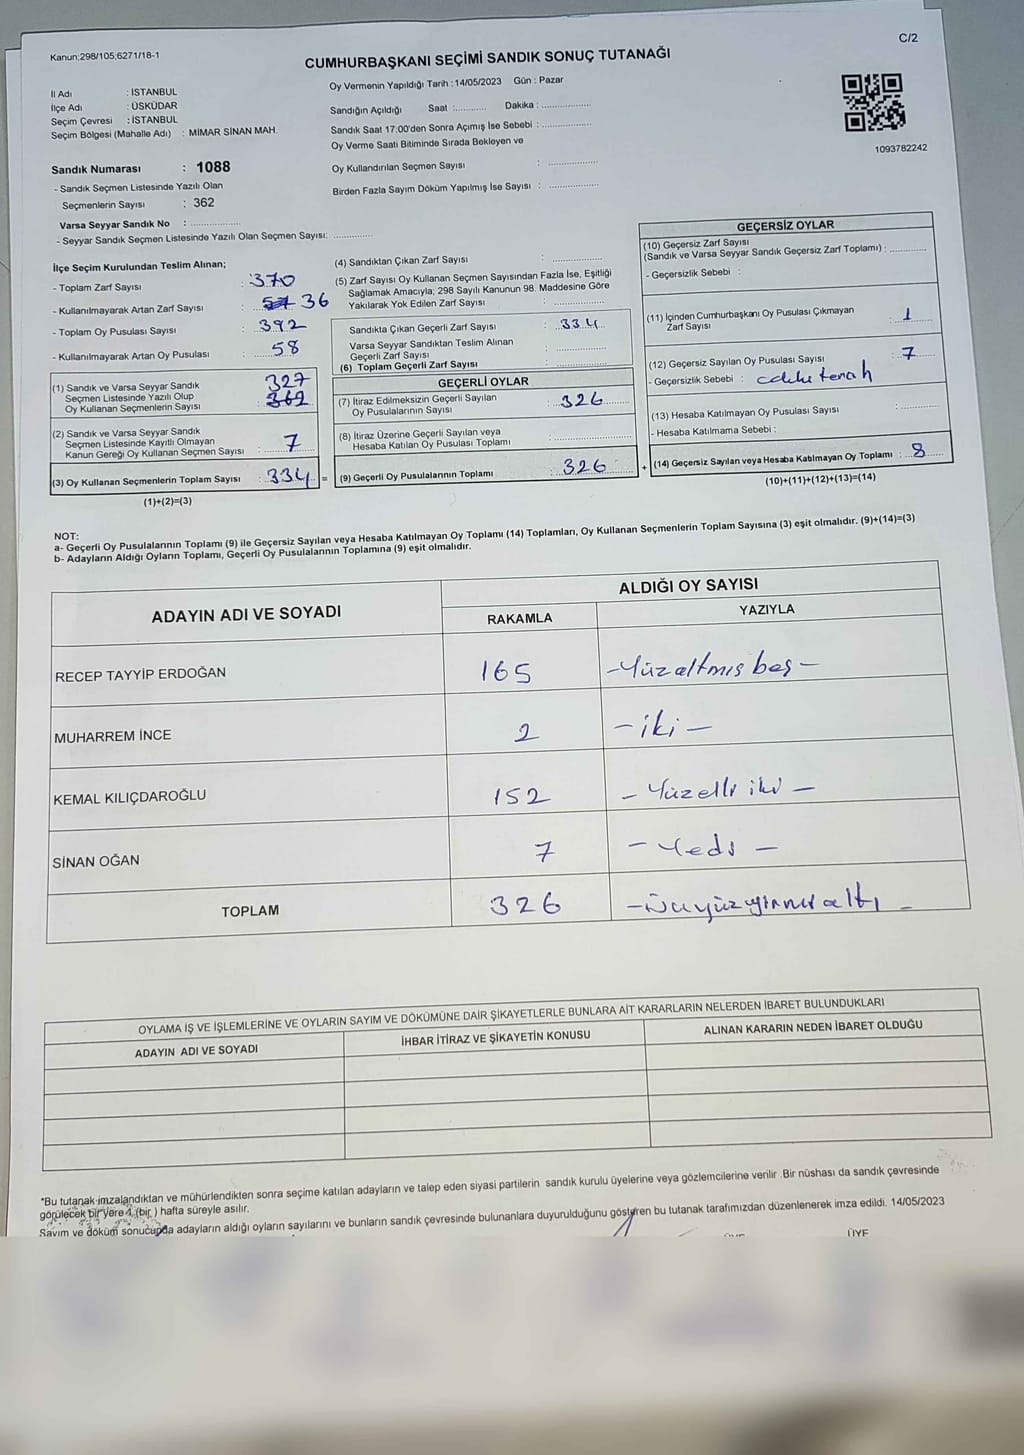 Kanun;298/105;6271/18-1
C/2
CUMHURBAŞKANI SEÇİMİ SANDIK SONUÇ TUTANAĞI
Oy Vermenin Yapıldığı Tarih : 14/05/2023 Gün : Pazar
İl Adı : İSTANBUL
İlçe Adı : ÜSKÜDAR
Seçim Çevresi : İSTANBUL
Seçim Bölgesi (Mahalle Adı) : MİMAR SİNAN MAH.
Sandığın Açıldığı Saat :........... Dakika : ................
Sandık Saat 17:00'den Sonra Açımış İse Sebebi : ................
Oy Verme Saati Bitiminde Sırada Bekleyen ve
Oy Kullandırılan Seçmen Sayısı : ................
Birden Fazla Sayım Döküm Yapılmış İse Sayısı : ................
1093782242
Sandık Numarası : 1088
- Sandık Seçmen Listesinde Yazılı Olan
Seçmenlerin Sayısı : 362
Varsa Seyyar Sandık No : ................
- Seyyar Sandık Seçmen Listesinde Yazılı Olan Seçmen Sayısı: .............
İlçe Seçim Kurulundan Teslim Alınan;
- Toplam Zarf Sayısı : 370
- Kullanılmayarak Artan Zarf Sayısı : 36
- Toplam Oy Pusulası Sayısı : 392
- Kullanılmayarak Artan Oy Pusulası : 58
(1) Sandık ve Varsa Seyyar Sandık
Seçmen Listesinde Yazılı Olup
Oy Kullanan Seçmenlerin Sayısı : 327 362
(2) Sandık ve Varsa Seyyar Sandık
Seçmen Listesinde Kayıtlı Olmayan
Kanun Gereği Oy Kullanan Seçmen Sayısı : 7
(3) Oy Kullanan Seçmenlerin Toplam Sayısı : 334 =
(1)+(2)=(3)
(4) Sandıktan Çıkan Zarf Sayısı : ................
(5) Zarf Sayısı Oy Kullanan Seçmen Sayısından Fazla İse, Eşitliği
Sağlamak Amacıyla; 298 Sayılı Kanunun 98. Maddesine Göre
Yakılarak Yok Edilen Zarf Sayısı : ................
Sandıkta Çıkan Geçerli Zarf Sayısı : 334
Varsa Seyyar Sandıktan Teslim Alınan
Geçerli Zarf Sayısı : ................
(6) Toplam Geçerli Zarf Sayısı : ................
GEÇERLİ OYLAR
(7) İtiraz Edilmeksizin Geçerli Sayılan
Oy Pusulalarının Sayısı : 326
(8) İtiraz Üzerine Geçerli Sayılan veya
Hesaba Katılan Oy Pusulası Toplamı : ................
(9) Geçerli Oy Pusulalarının Toplamı : 326 +
GEÇERSİZ OYLAR
(10) Geçersiz Zarf Sayısı
(Sandık ve Varsa Seyyar Sandık Geçersiz Zarf Toplamı) : ..........
- Geçersizlik Sebebi :
(11) İçinden Cumhurbaşkanı Oy Pusulası Çıkmayan
Zarf Sayısı : 1
(12) Geçersiz Sayılan Oy Pusulası Sayısı : 7
- Geçersizlik Sebebi :
(13) Hesaba Katılmayan Oy Pusulası Sayısı : ..........
- Hesaba Katılmama Sebebi :
(14) Geçersiz Sayılan veya Hesaba Katılmayan Oy Toplamı : 8
(10)+(11)+(12)+(13)=(14)
NOT:
a- Geçerli Oy Pusulalarının Toplamı (9) ile Geçersiz Sayılan veya Hesaba Katılmayan Oy Toplamı (14) Toplamları, Oy Kullanan Seçmenlerin Toplam Sayısına (3) eşit olmalıdır. (9)+(14)=(3)
b- Adayların Aldığı Oyların Toplamı, Geçerli Oy Pusulalarının Toplamına (9) eşit olmalıdır.
ADAYIN ADI VE SOYADI
ALDIĞI OY SAYISI
RAKAMLA YAZIYLA
RECEP TAYYİP ERDOĞAN 165 -Yüzaltmış beş-
MUHARREM İNCE 2 -iki-
KEMAL KILIÇDAROĞLU 152 -Yüzelli iki-
SİNAN OĞAN 7 -Yedi-
TOPLAM 326 -Üçyüzyirmi altı-
OYLAMA İŞ VE İŞLEMLERİNE VE OYLARIN SAYIM VE DÖKÜMÜNE DAİR ŞİKAYETLERLE BUNLARA AİT KARARLARIN NELERDEN İBARET BULUNDUKLARI
ADAYIN ADI VE SOYADI
İHBAR İTİRAZ VE ŞİKAYETİN KONUSU
ALINAN KARARIN NEDEN İBARET OLDUĞU
*Bu tutanak imzalandıktan ve mühürlendikten sonra seçime katılan adayların ve talep eden siyasi partilerin sandık kurulu üyelerine veya gözlemcilerine verilir .Bir nüshası da sandık çevresinde
görülecek bir yere 1 (bir ) hafta süreyle asılır.
Sayım ve döküm sonucunda adayların aldığı oyların sayılarını ve bunların sandık çevresinde bulunanlara duyurulduğunu gösteren bu tutanak tarafımızdan düzenlenerek imza edildi. 14/05/2023
ÜYE